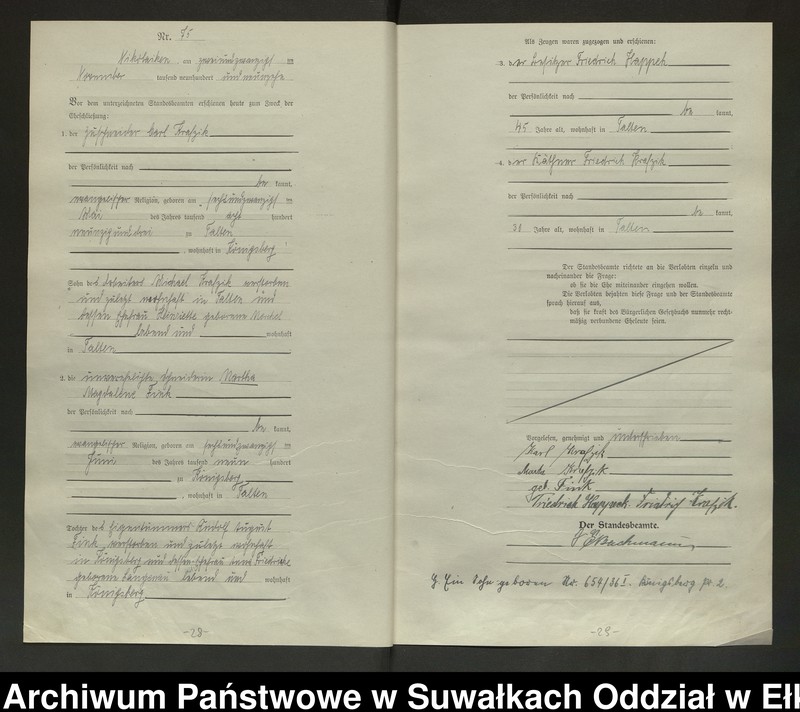 Nr. 15
Nikolaiken am zweiundzwanzigsten
November tausend neunhundert undneunzehn
Vor dem unterzeichneten Standesbeamten erschienen heute zum Zweck der
Eheschließung:
1. der Zuschneider Karl Krafzik
der Persönlichkeit nach
be kannt,
evangelischer Religion, geboren am sechsundzwanzigsten
Mai des Jahres tausend acht hundert
neunzigunddrei zu Talten
, wohnhaft in Königsberg
Sohn des Arbeiters Michael Krafzik verstorben
und zuletzt wohnhaft in Talten und
dessen Ehefrau Henriette geborene
lebend und wohnhaft
in Talten
2. die unverehelichte Schneiderin Martha
Magdalene Fink
der Persönlichkeit nach
be kannt,
evangelischer Religion, geboren am sechsundzwanzigsten
Juni des Jahres tausend neun hundert
zu Königsberg
, wohnhaft in Talten
Tochter des Eigentümers Rudolf August
Fink verstorben und zuletzt wohnhaft
in Königsberg und dessen Ehefrau Friederike
geborene lebend und wohnhaft
in Königsberg
-28-
Als Zeugen waren zugezogen und erschienen:
3. der Besitzer Friedrich Happek
der Persönlichkeit nach
be kannt,
45 Jahre alt, wohnhaft in Talten
4. der Käthner Friedrich Krafzik
der Persönlichkeit nach
be kannt,
31 Jahre alt, wohnhaft in Talten
Der Standesbeamte richtete an die Verlobten einzeln und
nacheinander die Frage:
ob sie die Ehe miteinander eingehen wollen.
Die Verlobten bejahten diese Frage und der Standesbeamte
sprach hierauf aus,
daß sie kraft des Bürgerlichen Gesetzbuchs nunmehr recht-
mäßig verbundene Eheleute seien.
Vorgelesen, genehmigt und unterschrieben
Karl Krafzik
Marta Krafzik
geb. Fink
Friedrich Happek Friedrich Krafzik.
Der Standesbeamte.
Bachmann
Ein Sohn geboren Nr. 654/36 I. Königsberg Pr. 2.
-29-
Archiwum Państwowe w Suwałkach Oddział w Ełk